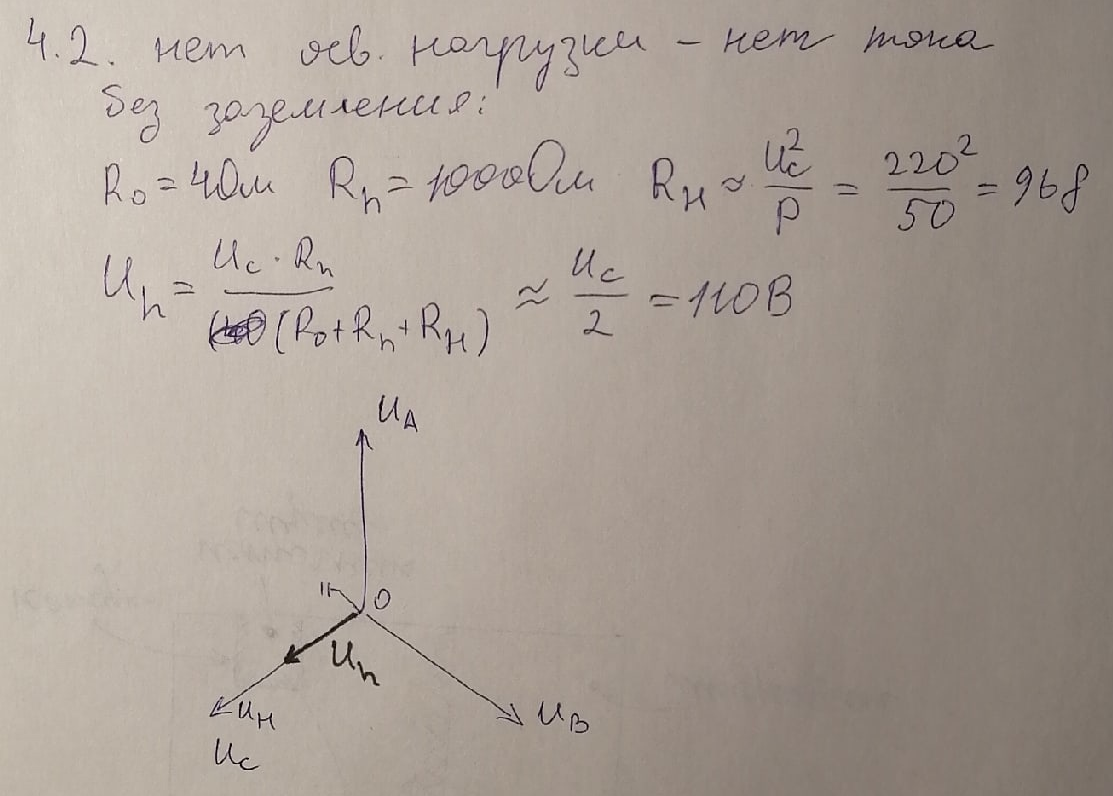 4.2. нет осв. нагрузки – нет тока
без заземления:
R₀ = 4Ом  R_h = 1000Ом  R_H ≈ U_c²/P = 220²/50 = 968
U_h = U_c · R_h / (R₀ + R_h + R_H) ≈ U_c/2 = 110В
U_A
H O
U_h
U_H U_B
U_c